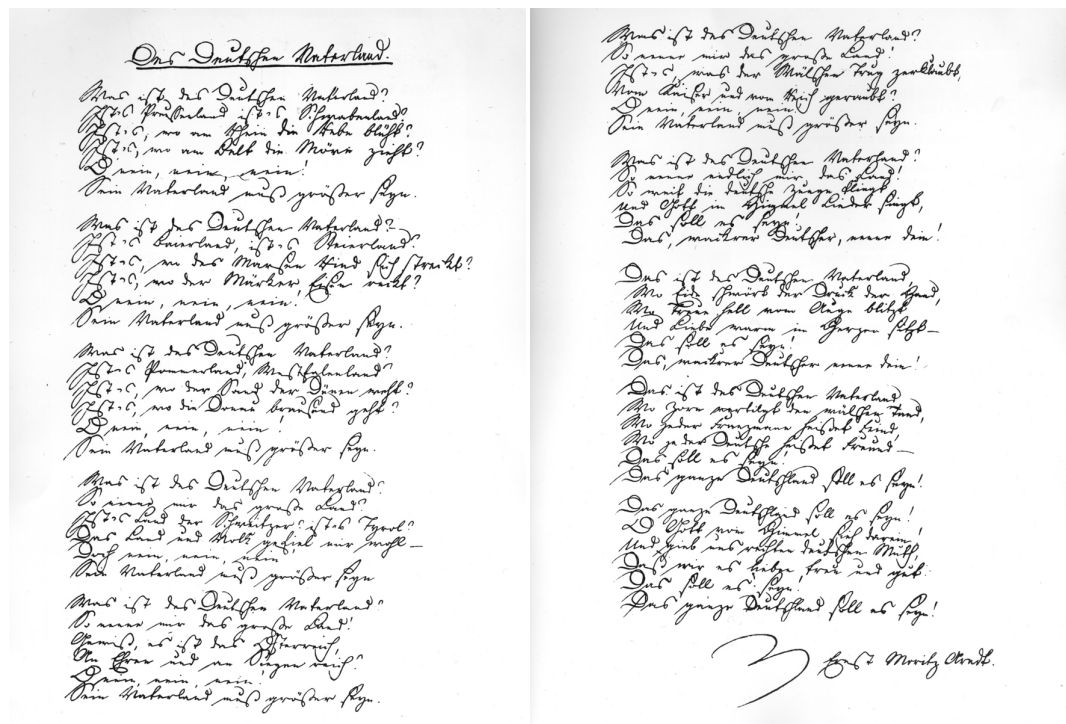 Des Deutschen Vaterland.
Was ist des Deutschen Vaterland?
Ist's Preussenland ist's Schwabenland?
Ist's, wo am Rhein die Rebe blüht?
Ist's, wo am Belt die Möve zieht?
O nein, nein, nein!
Sein Vaterland muß größer seyn.
Was ist des Deutschen Vaterland?
Ist's Baierland, ist's Steierland?
Ist's, wo des Marsen Rind sich streckt?
Ist's, wo der Märker Eisen reckt?
O nein, nein, nein!
Sein Vaterland muß größer seyn.
Was ist des Deutschen Vaterland?
Ist's Pommerland, Westfalenland?
Ist's, wo der Sand der Dünen weht?
Ist's, wo die Donau brausend geht?
O nein, nein, nein!
Sein Vaterland muß größer seyn.
Was ist des Deutschen Vaterland?
So nenne mir das große Land!
Ist's Land der Schweitzer? ist's Tyrol?
Das Land und Volk gefiel mir wohl—
Doch nein, nein, nein
Sein Vaterland muß größer seyn
Was ist des Deutschen Vaterland?
So nenne mir das große Land!
Gewiß, es ist das Österreich,
An Ehren und an Siegen reich?
O nein, nein, nein!
Sein Vaterland muß größer seyn.
Was ist des Deutschen Vaterland?
So nenne mir das große Land!
Ist's, was der Wälschen Trug zerklaubt,
Vom Kaiser und vom Reich geraubt?
O nein, nein, nein!
Sein Vaterland muß größer seyn.
Was ist des Deutschen Vaterland?
So nenne endlich mir das Land!
So weit die deutsche Zunge klingt
Und Gott im Himmel Lieder singt,
Das soll es seyn!
Das, wackrer Deutscher, nenne dein!
Das ist des Deutschen Vaterland
Wo Eide schwört der Druck der Hand,
Wo Treue hell vom Auge blitzt
Und Liebe warm im Herzen sitzt—
Das soll es seyn!
Das, wackrer Deutscher nenne dein!
Das ist des Deutschen Vaterland
Wo Zorn vertilgt den wälschen Tand,
Wo jeder Franzmann heißet Feind,
Wo jeder Deutsche heißet Freund—
Das soll es seyn!
Das ganze Deutschland soll es seyn!
Das ganze Deutschland soll es seyn!
O Gott vom Himmel sieh darein!
Und gieb uns rechten deutschen Muth,
Daß wir es lieben treu und gut.
Das soll es seyn!
Das ganze Deutschland soll es seyn!
Ernst Moritz Arndt.